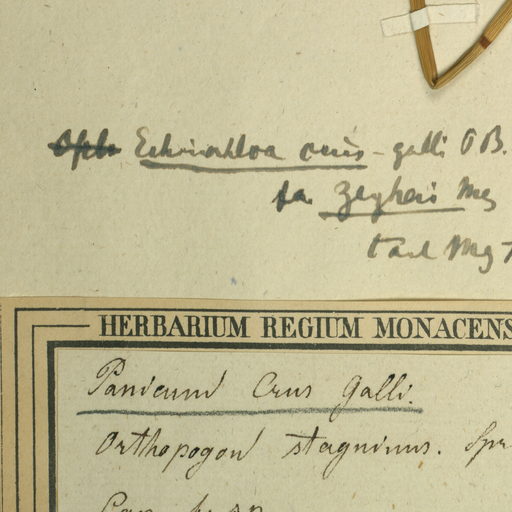 Echinochloa crus-galli P B.
fa. Zeyheri Mez
HERBARIUM REGIUM MONACENS
Panicum Crus Galli.
Orthopogon stagninus. Spr